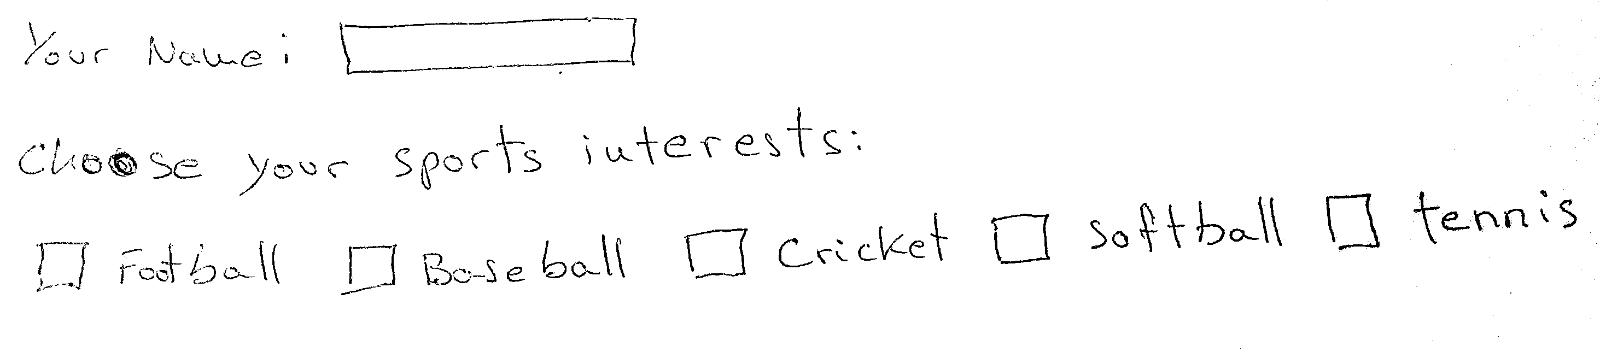 Your Name:
Choose your sports interests:
Football Baseball Cricket softball tennis